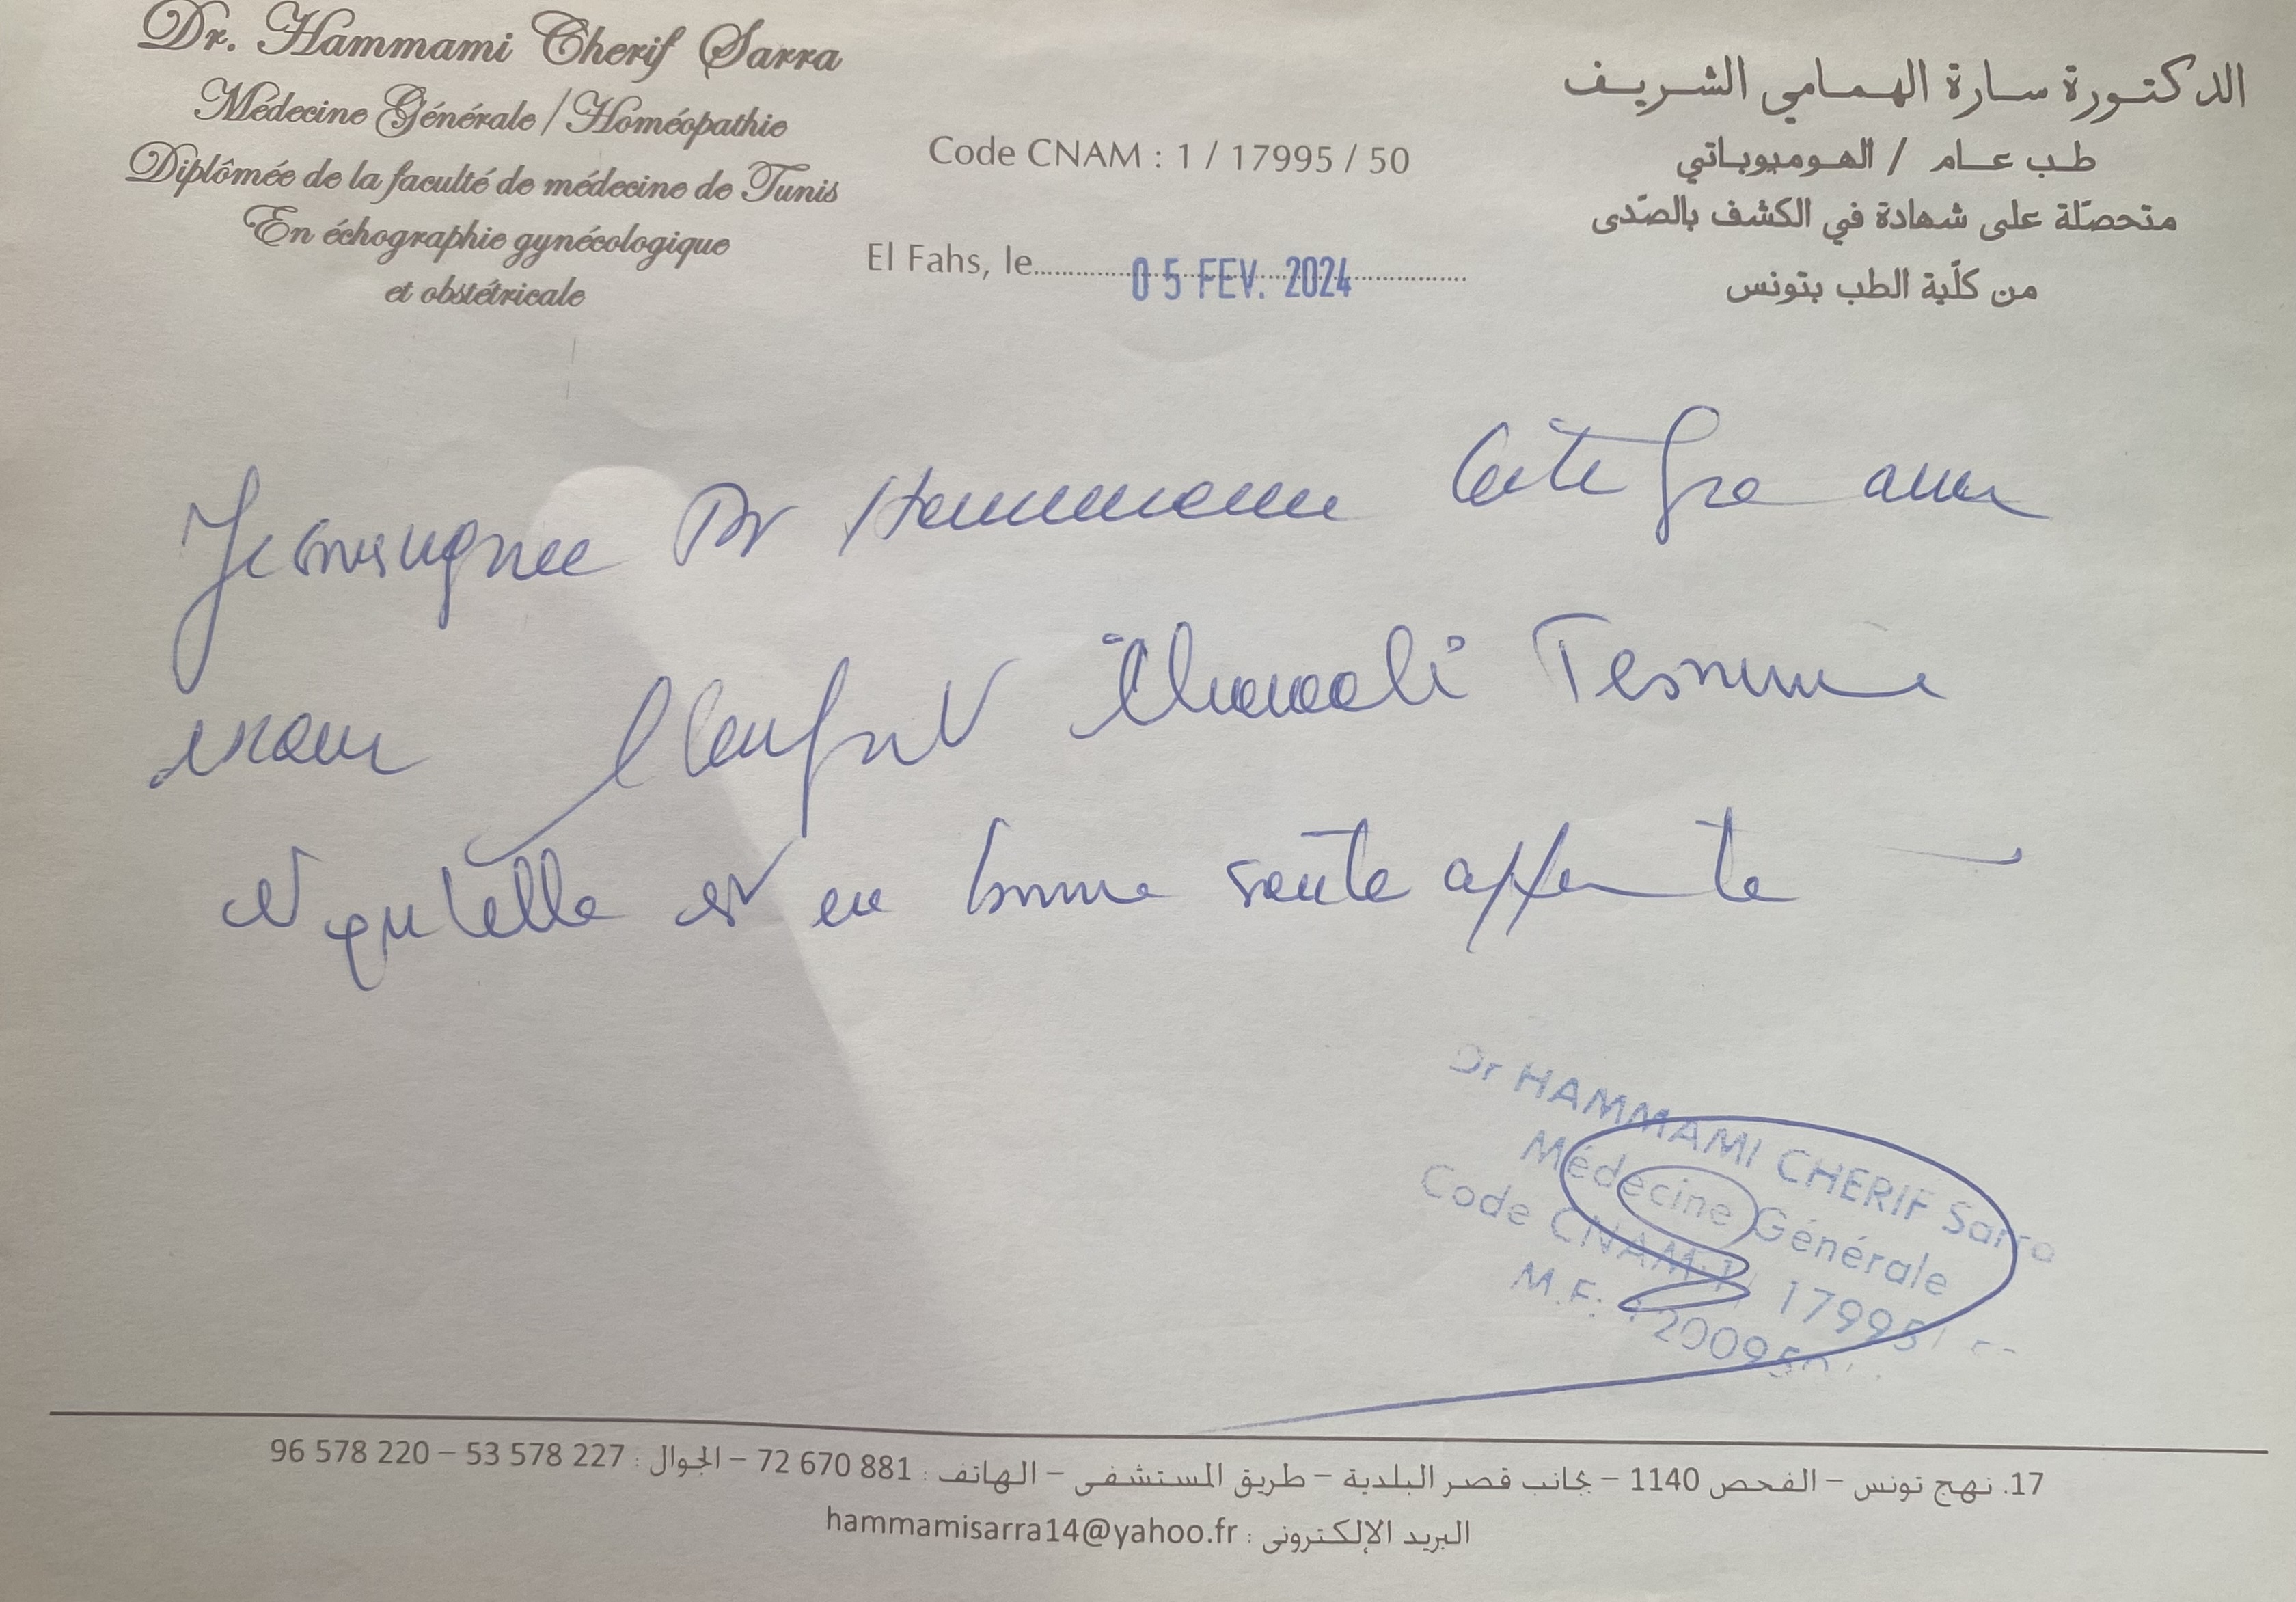 Dr. Hammami Cherif Sarra
Médecine Générale / Homéopathie
Diplômée de la faculté de médecine de Tunis
En échographie gynécologique
et obstétricale
Code CNAM : 1 / 17995 / 50
El Fahs, le 05 FEV. 2024
الدكتورة سارة الهمامي الشريف
طب عام / الهوميوباتي
متحصّلة على شهادة في الكشف بالصّدى
من كلّية الطب بتونس
Je soussignée Dr Hammami certifie avoir
examiné l'enfant
et qu'elle est en bonne santé apparente
Dr HAMMAMI CHERIF Sarra
Médecine Générale
Code CNAM 1/ 17995/
M.F:
17. نهج تونس – الفحص 1140 – بجانب قصر البلدية – طريق المستشفى – الهاتف : 72 670 881 – الجوال : 53 578 227 – 96 578 220
البريد الإلكتروني : hammamisarra14@yahoo.fr